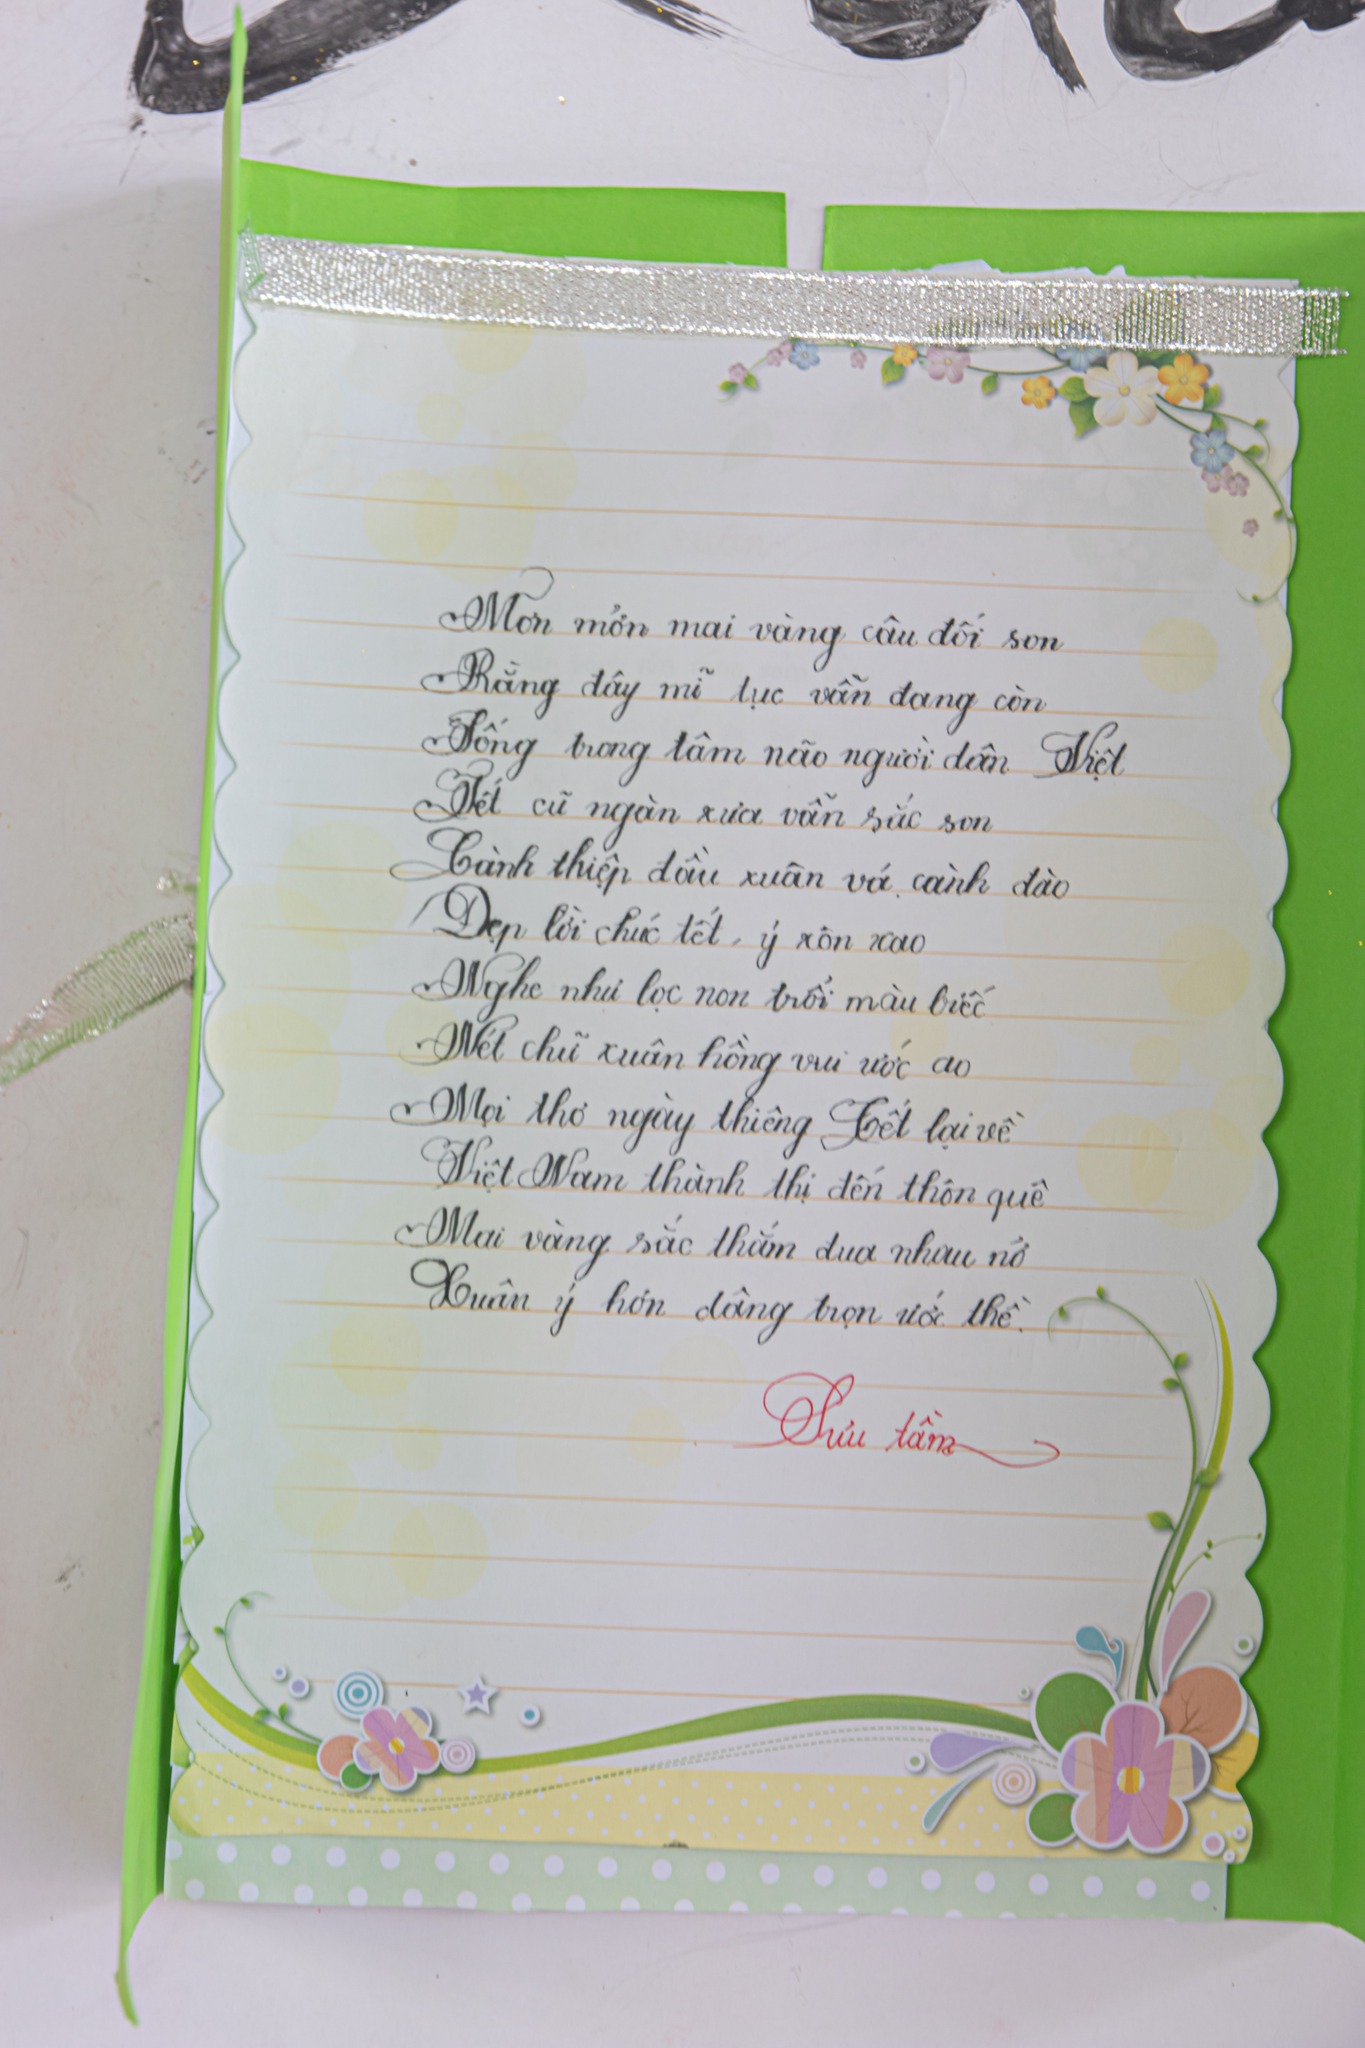 Mơn mởn mai vàng câu đối son
Rằng đây mĩ tục vẫn đang còn
Sống trong tâm não người dân Việt
Tết cũ ngàn xưa vẫn sắc son
Cành thiệp đầu xuân vá cành đào
Đẹp lời chúc tết, ý xôn xao
Nghe như lọc non trổi màu biếc
Nét chữ xuân hồng vui ước ao
Mọi thơ ngày thiêng Tết lại về
Việt Nam thành thị đến thôn quê
Mai vàng sắc thắm đua nhau nở
Xuân ý hơn dâng trọn ước thề.
Sưu tầm